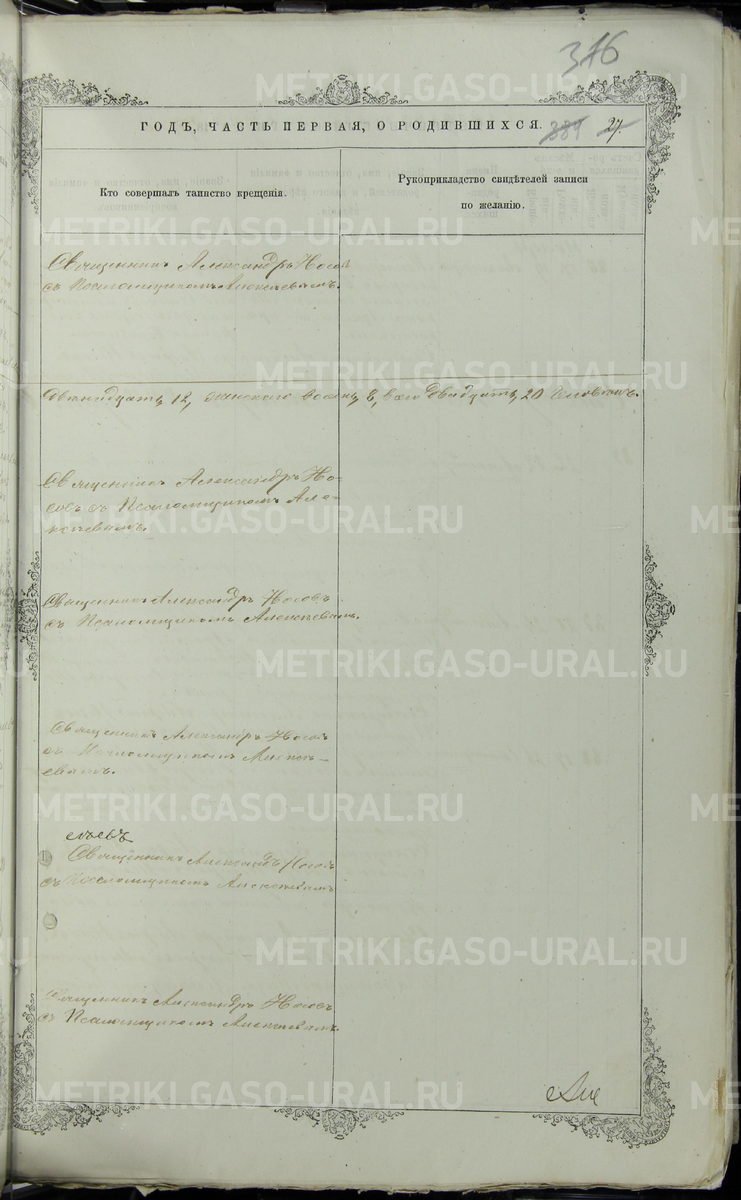 376
ГОДЪ, ЧАСТЬ ПЕРВАЯ, О РОДИВШИХСЯ. 384 27.
Кто совершалъ таинство крещенія.
Рукоприкладство свидѣтелей записи
по желанію.
Священникъ Александръ Носов
съ Псаломщикомъ Алексѣевымъ.
Двенадцать 12, женскаго восемь 8, всего двадцать 20 человѣкъ.
Священникъ Александръ Но-
совъ съ Псаломщикомъ Але-
ксѣевымъ.
Священникъ Александръ Носовъ
съ Псаломщикомъ Алексѣевымъ.
Священникъ Александръ Носовъ
съ Псаломщикомъ Алексѣ-
евымъ.
Священникъ Александръ Носовъ
съ Псаломщикомъ Алексѣевымъ
Священникъ Александръ Носовъ
съ Псаломщикомъ Алексѣевымъ.
METRIKI.GASO-URAL.RU